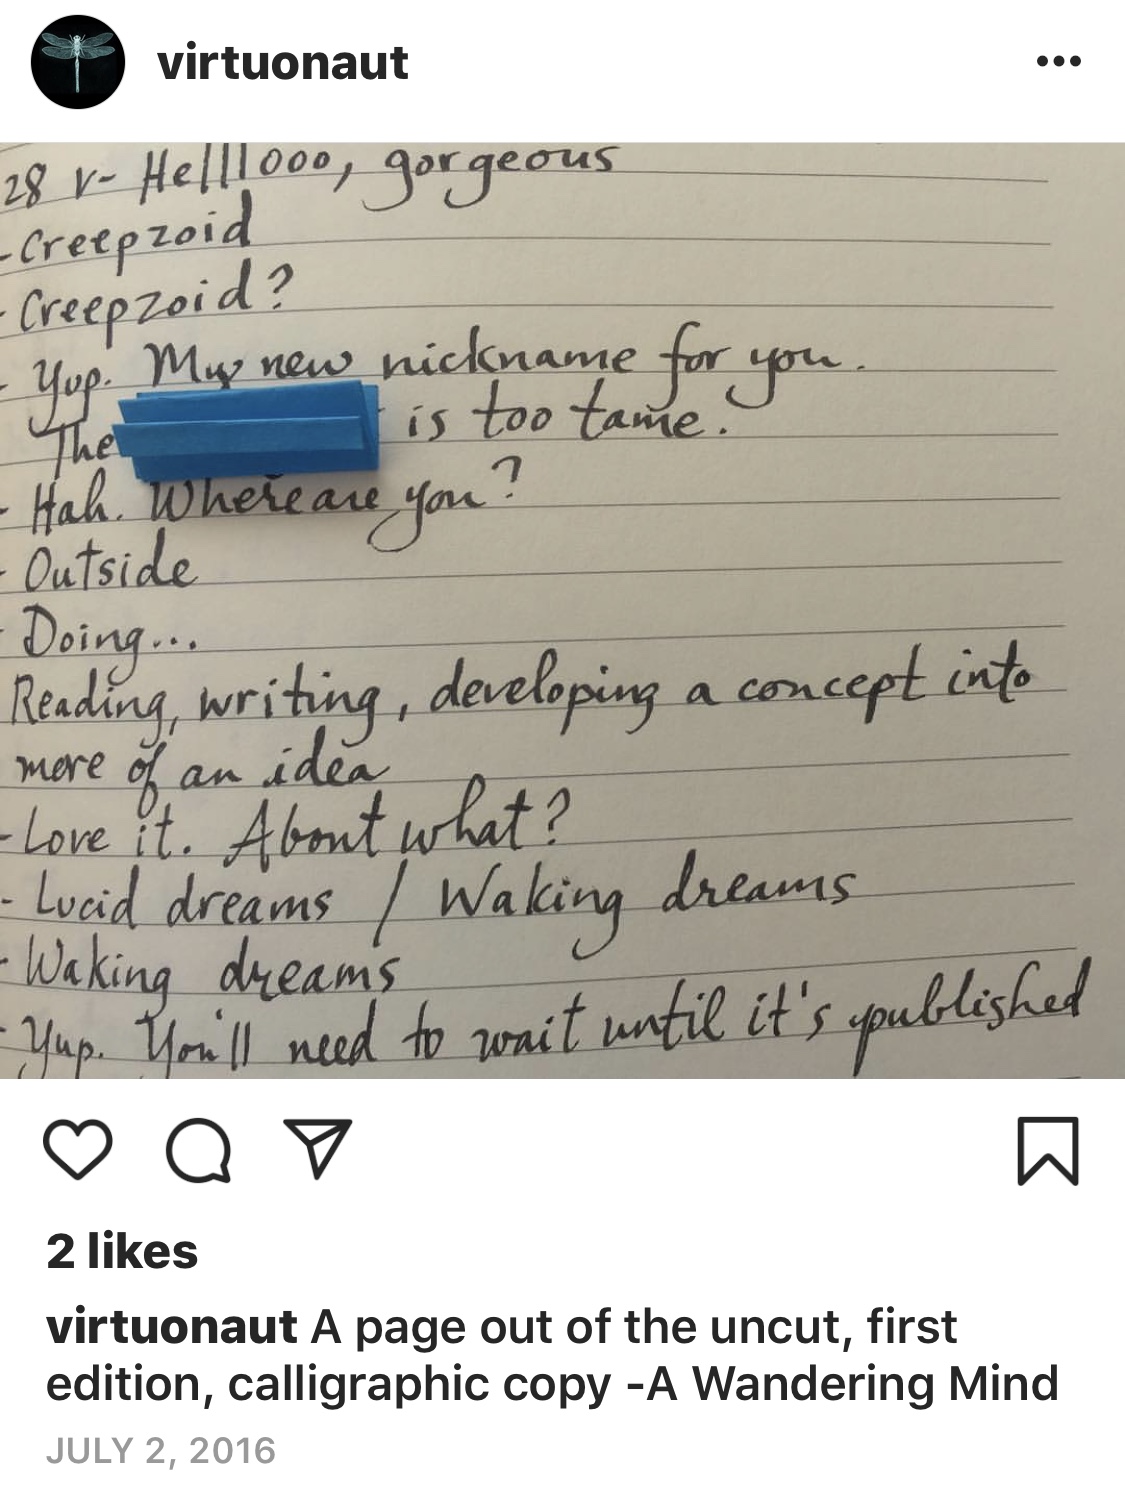 virtuonaut
28 r- Helllooo, gorgeous
- Creepzoid
- Creepzoid?
- Yup. My new nickname for you.
The is too tame.
- Hah. Where are you?
- Outside
- Doing...
Reading, writing, developing a concept into
more of an idea
- Love it. About what?
- Lucid dreams / Waking dreams
- Waking dreams
- Yup. You'll need to wait until it's published
2 likes
virtuonaut A page out of the uncut, first
edition, calligraphic copy -A Wandering Mind
JULY 2, 2016